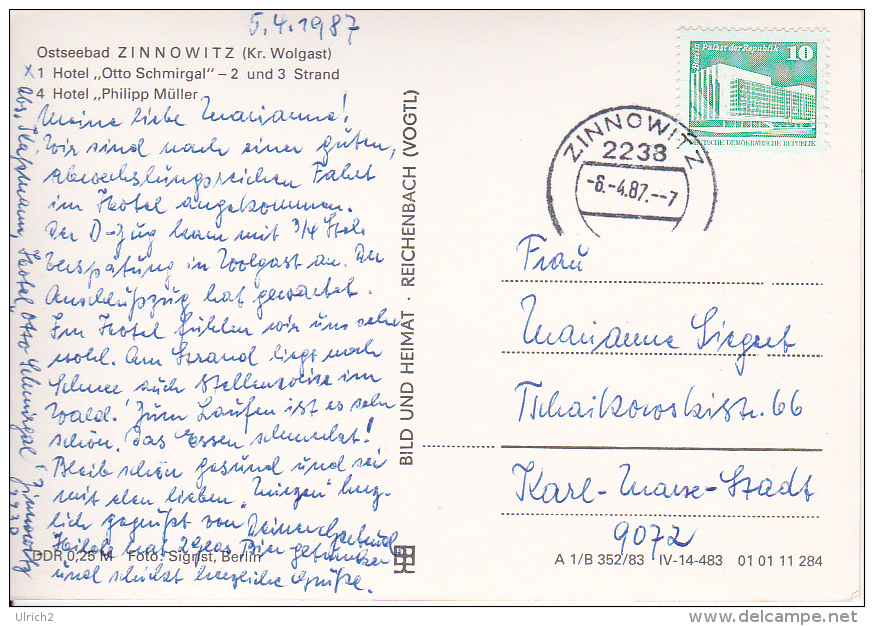 5.4.1987
Ostseebad ZINNOWITZ (Kr. Wolgast)
x1 Hotel „Otto Schmirgal" – 2 und 3 Strand
4 Hotel „Philipp Müller
Meine liebe Marianne!
Wir sind nach einer guten,
abwechslungsreichen Fahrt
im Hotel angekommen.
Der D-Zug kam mit 3/4 Std.
Verspätung in Wolgast an. Der
Anschlußzug hat gewartet.
Im Hotel fühlen wir uns sehr
wohl. Am Strand liegt noch
Schnee auch stellenweise im
Wald. Zum Laufen ist es sehr
schön. Das Essen schmeckt!
Bleib schön gesund und sei
mit den lieben herz-
lich gegrüßt von Deiner
hat 2 Glas Bier getrunken
und schickt herzliche Grüße.
Abs. Hotel „Otto Schmirgal" Zinnowitz
DDR 0,25 M Foto: Sigrist, Berlin
BILD UND HEIMAT · REICHENBACH (VOGTL)
Palast der Republik 10
DEUTSCHE DEMOKRATISCHE REPUBLIK
ZINNOWITZ
2238
-6.-4.87.--7
Frau
Marianne Siegert
Tschaikowskistr. 66
Karl-Marx-Stadt
9072
A 1/B 352/83 IV-14-483 01 01 11 284
Ulrich2
www.delcampe.net